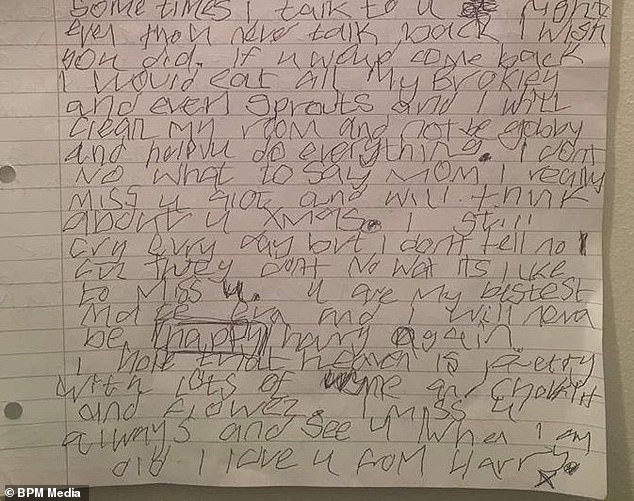 Some times I talk to u
even thou u never talk back I wish
you did. if u wud come back
I would eat all my Brokley
and even sprouts and I will
clean my room and not be gobby
and helpvu do everything. I dont
no what to say MoM I really
miss u alot and will think
about u Xmas. I still
cry evry day but I dont tell no 1
cuz they dont no wat its like
to miss u. u are my bestest
mate eva and I will neva
be happy harry again
I hope that heaven is pretty
with lots of wine an choklit
and flawez. I miss u
always and see u when I am
old. I love u from Harry x
© BPM Media